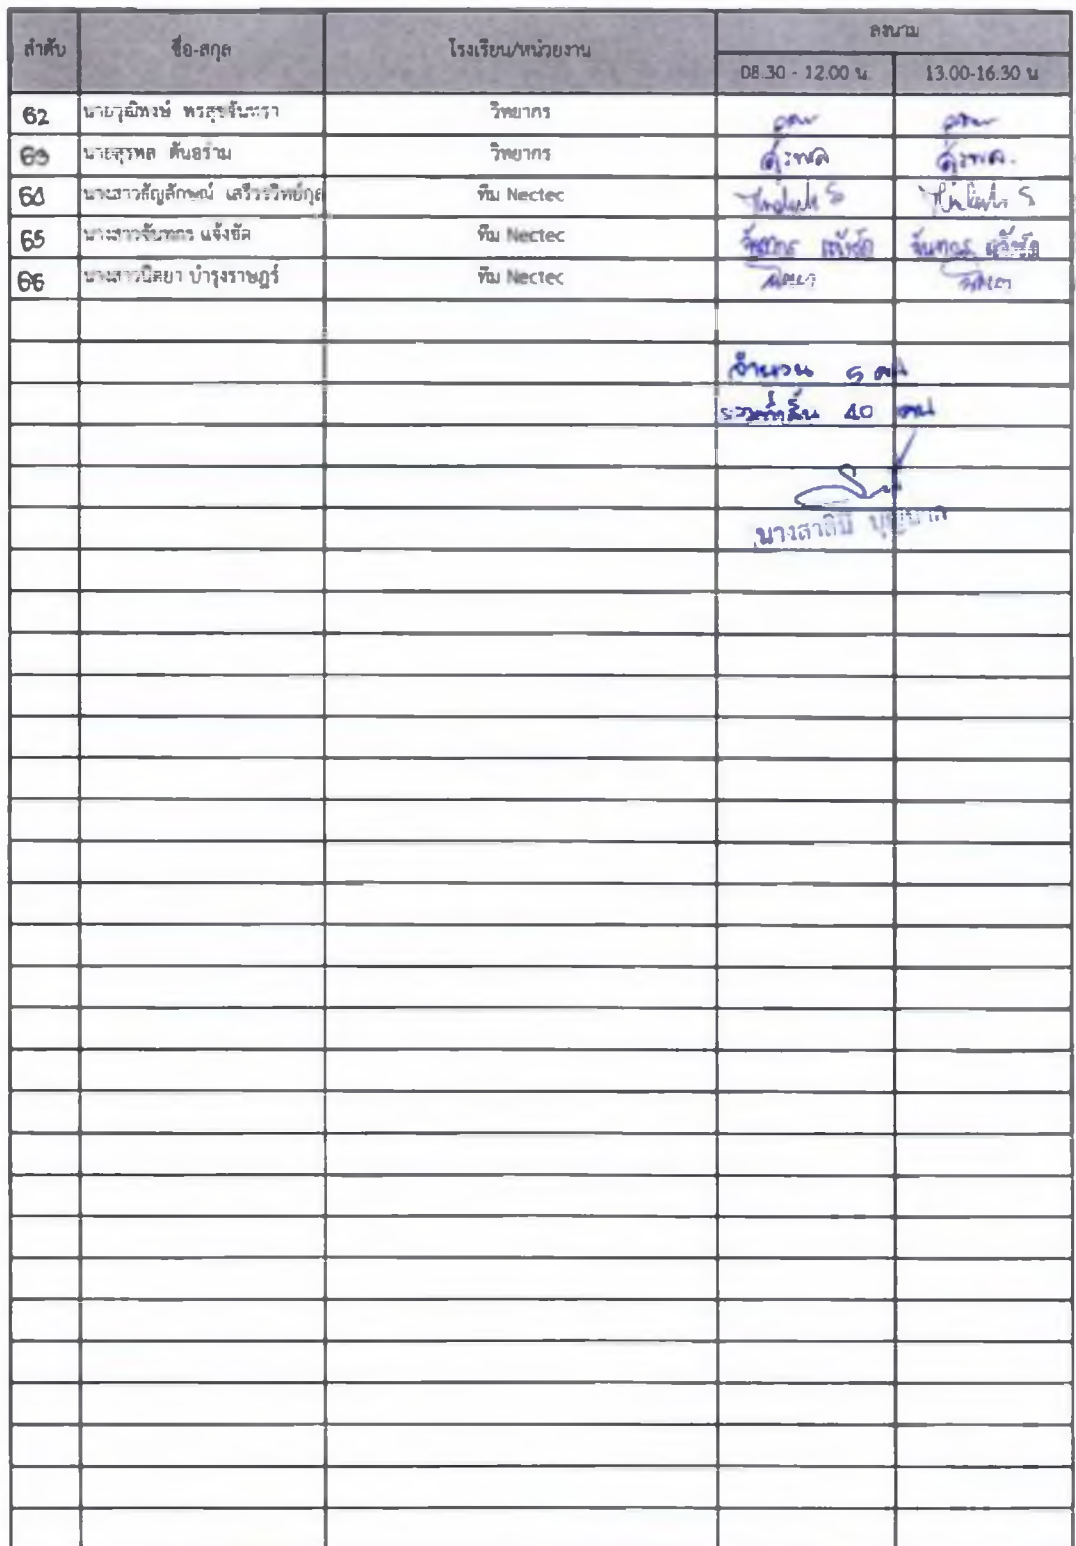 ลำดับ ชื่อ-สกุล โรงเรียน/หน่วยงาน ลงนาม
08.30 - 12.00 น 13.00-16.30 น
62 นายวุฒิพงษ์ พรสุขจันทรา วิทยากร
63 นายสุรพล ตันอร่าม วิทยากร สุรพล สุรพล.
64 นางสาวธัญลักษณ์ เสรีวรวิทย์กุล ทีม Nectec
65 นางสาวจันทกร แจ้งชัด ทีม Nectec จันทกร แจ้งชัด จันทกร แจ้งชัด
66 นางสาวนิตยา บำรุงราษฎร์ ทีม Nectec นิตยา นิตยา
จำนวน 5 คน
รวมทั้งสิ้น 40 คน
นางสาลินี